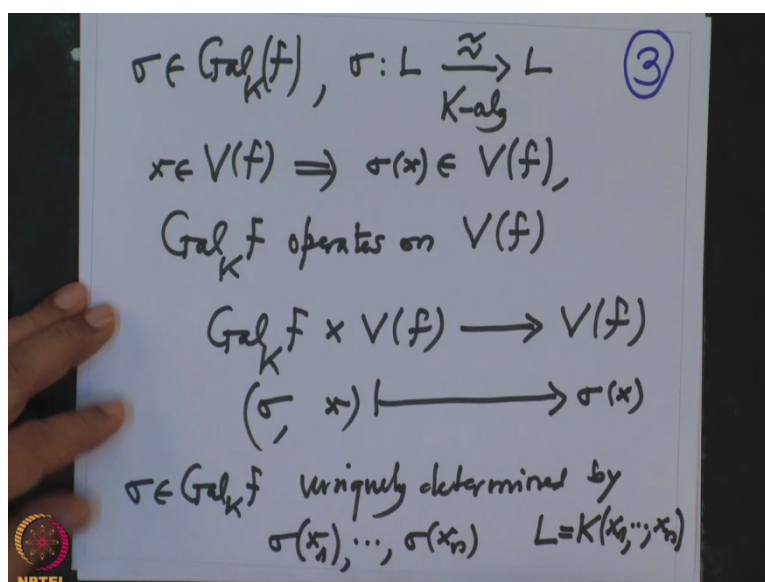 σ ∈ Gal_K(f), σ: L ≃→ L K-alg ③
x ∈ V(f) ⟹ σ(x) ∈ V(f),
Gal_K f operates on V(f)
Gal_K f × V(f) ⟶ V(f)
(σ, x) ⟼ σ(x)
σ ∈ Gal_K f uniquely determined by
σ(x₁), ⋯, σ(xₙ) L = K(x₁, ⋯, xₙ)
NPTEL